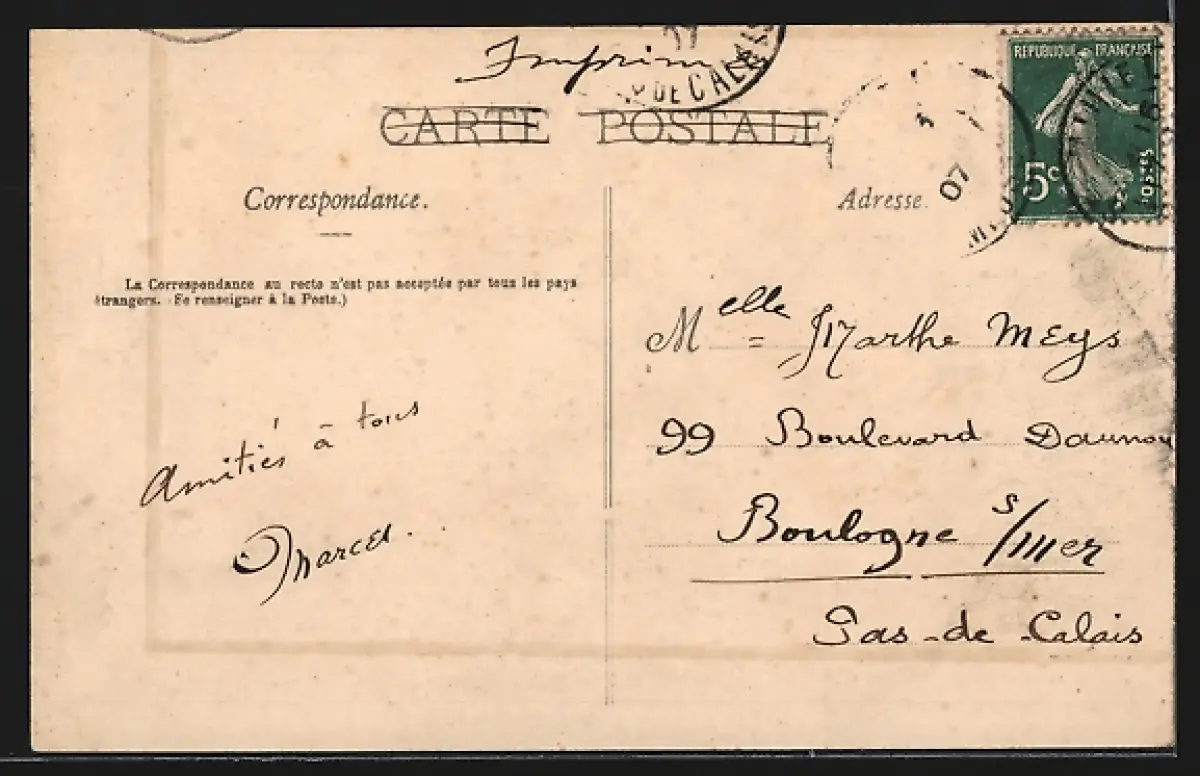 Imprimé
DE CALAIS
CARTE POSTALE
REPUBLIQUE FRANÇAISE
5c
07
Correspondance.
Adresse.
La Correspondance au recto n'est pas acceptée par tous les pays
étrangers. (Se renseigner à la Poste.)
Amitiés à tous
Marcel.
Melle Marthe Meys
99 Boulevard Daunou
Boulogne s/mer
Pas-de-Calais